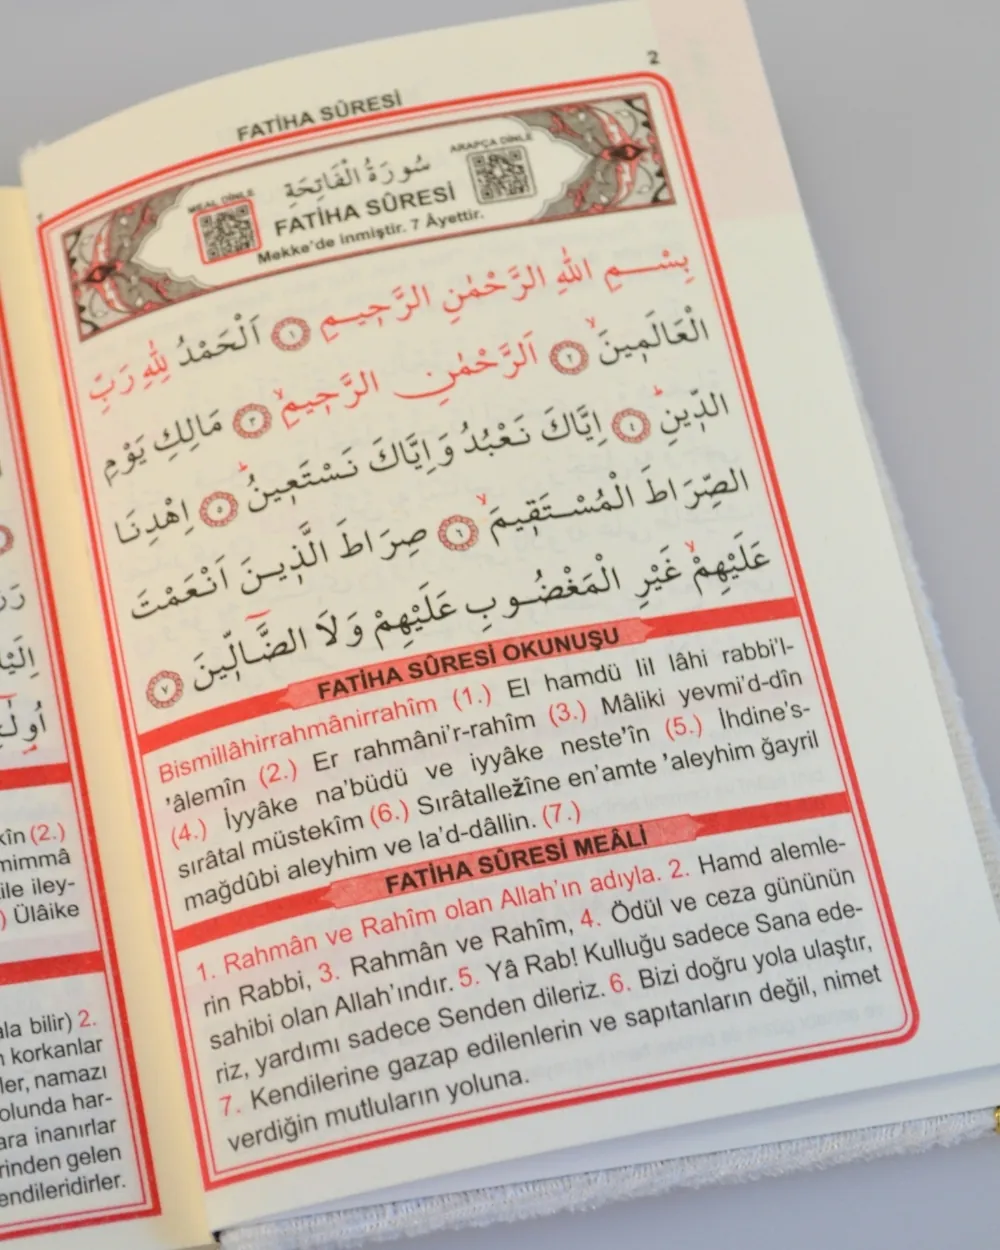 2
FATİHA SÛRESİ
MEAL DİNLE
ARAPÇA DİNLE
سُورَةُ الْفَاتِحَةِ
FATİHA SÛRESİ
Mekke’de inmiştir. 7 Âyettir.
بِسْمِ اللهِ الرَّحْمٰنِ الرَّح۪يمِ ﴿١﴾ اَلْحَمْدُ لِلّٰهِ رَبِّ
الْعَالَم۪ينَۙ ﴿٢﴾ اَلرَّحْمٰنِ الرَّح۪يمِۙ ﴿٣﴾ مَالِكِ يَوْمِ
الدّ۪ينِۜ ﴿٤﴾ اِيَّاكَ نَعْبُدُ وَاِيَّاكَ نَسْتَع۪ينُۜ ﴿٥﴾ اِهْدِنَا
الصِّرَاطَ الْمُسْتَق۪يمَۙ ﴿٦﴾ صِرَاطَ الَّذ۪ينَ اَنْعَمْتَ
عَلَيْهِمْۙ غَيْرِ الْمَغْضُوبِ عَلَيْهِمْ وَلَا الضَّٓالّ۪ينَ ﴿٧﴾
FATİHA SÛRESİ OKUNUŞU
Bismillâhirrahmânirrahîm (1.) El hamdü lil lâhi rabbi’l-
’âlemîn (2.) Er rahmâni’r-rahîm (3.) Mâliki yevmi’d-dîn
(4.) İyyâke na’büdü ve iyyâke neste’în (5.) İhdine’s-
sırâtal müstekîm (6.) Sırâtalležîne en’amte ’aleyhim ğayril
mağdûbi aleyhim ve la’d-dâllin. (7.)
FATİHA SÛRESİ MEÂLİ
1. Rahmân ve Rahîm olan Allah’ın adıyla. 2. Hamd alemle-
rin Rabbi, 3. Rahmân ve Rahîm, 4. Ödül ve ceza gününün
sahibi olan Allah’ındır. 5. Yâ Rab! Kulluğu sadece Sana ede-
riz, yardımı sadece Senden dileriz. 6. Bizi doğru yola ulaştır,
7. Kendilerine gazap edilenlerin ve sapıtanların değil, nimet
verdiğin mutluların yoluna.
kîn (2.)
mimmâ
ile iley-
Ülâike
ala bilir) 2.
korkanlar
ler, namazı
olunda har-
ara inanırlar
rinden gelen
endileridirler.